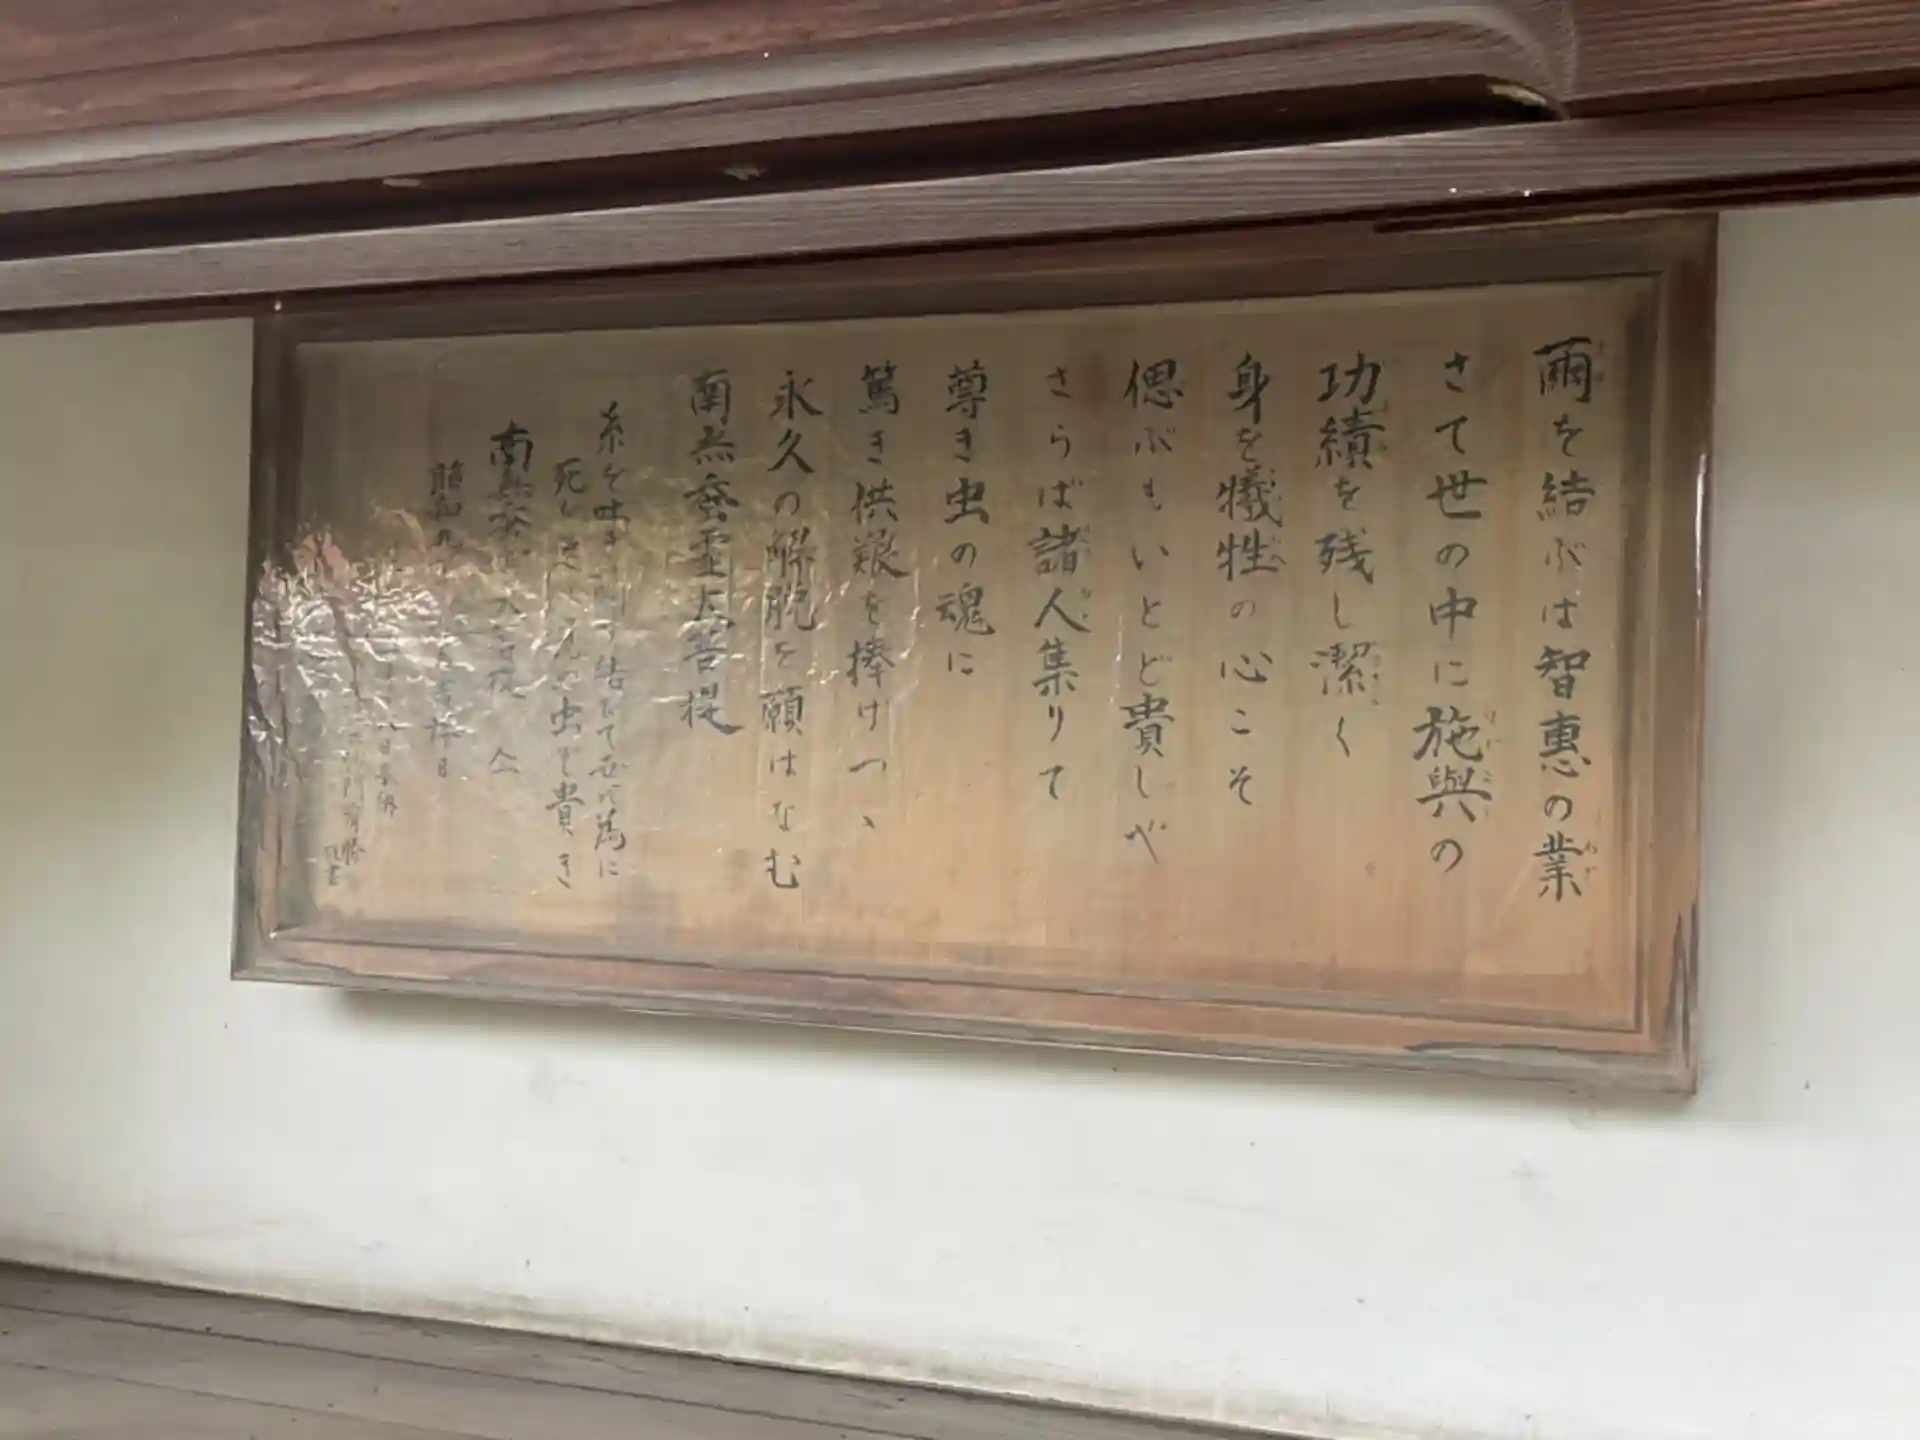 繭を結ぶは智惠の業
さて世の中に施與の
功績を残し潔く
身を犠牲の心こそ
偲ぶもいとど貴しや
さらば諸人集りて
尊き虫の魂に
篤き供養を捧げつゝ
永久の解脱を願はなむ
南無蚕霊大菩提
糸を吐き 結びて世の為に
死しさへ 虫ぞ貴き
南無蚕 大菩提
昭和 吉祥日